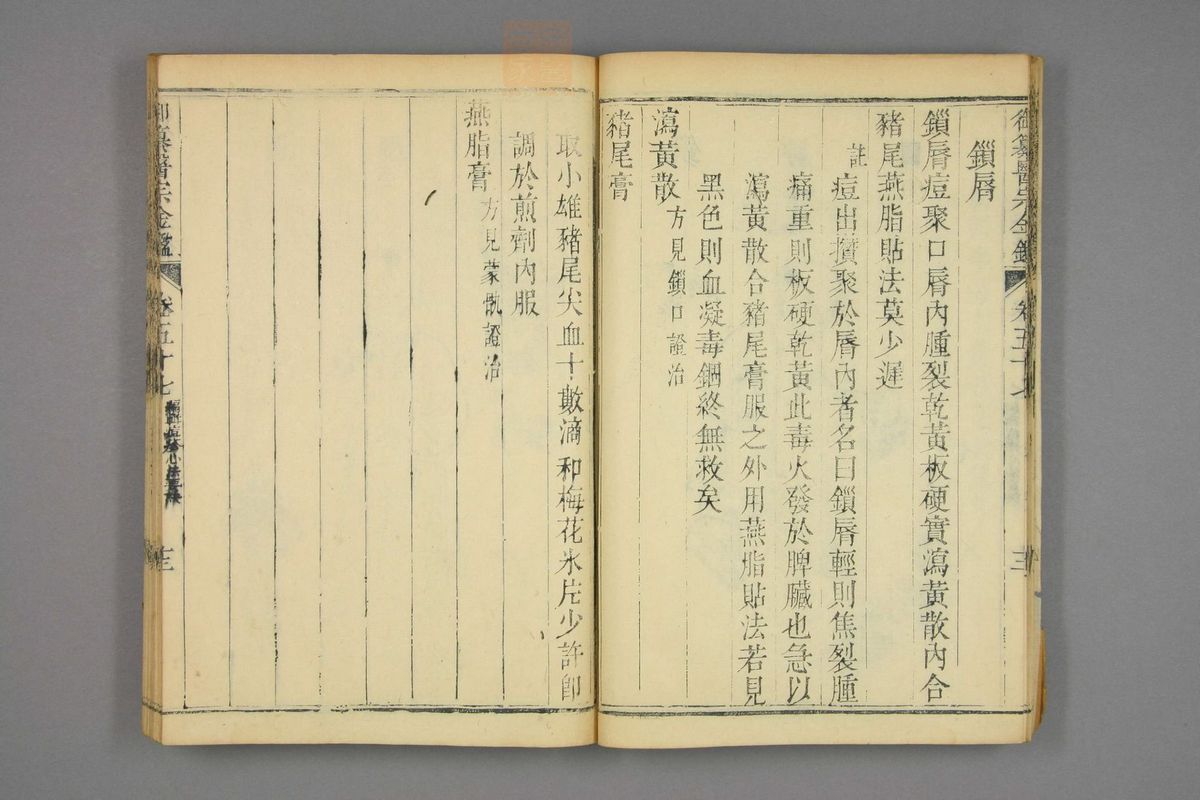 御纂醫宗金鑑 卷五十七 三
鎖脣
鎖脣痘聚口脣內腫裂乾黃板硬實瀉黃散內合
豬尾燕脂貼法莫少遲
註 痘出攢聚於脣內者名曰鎖脣輕則焦裂腫
痛重則板硬乾黃此毒火發於脾臟也急以
瀉黃散合豬尾膏服之外用燕脂貼法若見
黑色則血凝毒錮終無救矣
瀉黃散 方見鎖口證治
豬尾膏
取小雄豬尾尖血十數滴和梅花氷片少許卽
調於煎劑內服
燕脂膏 方見蒙骫證治
御纂醫宗金鑑 卷五十七 痘疹心法要訣 三